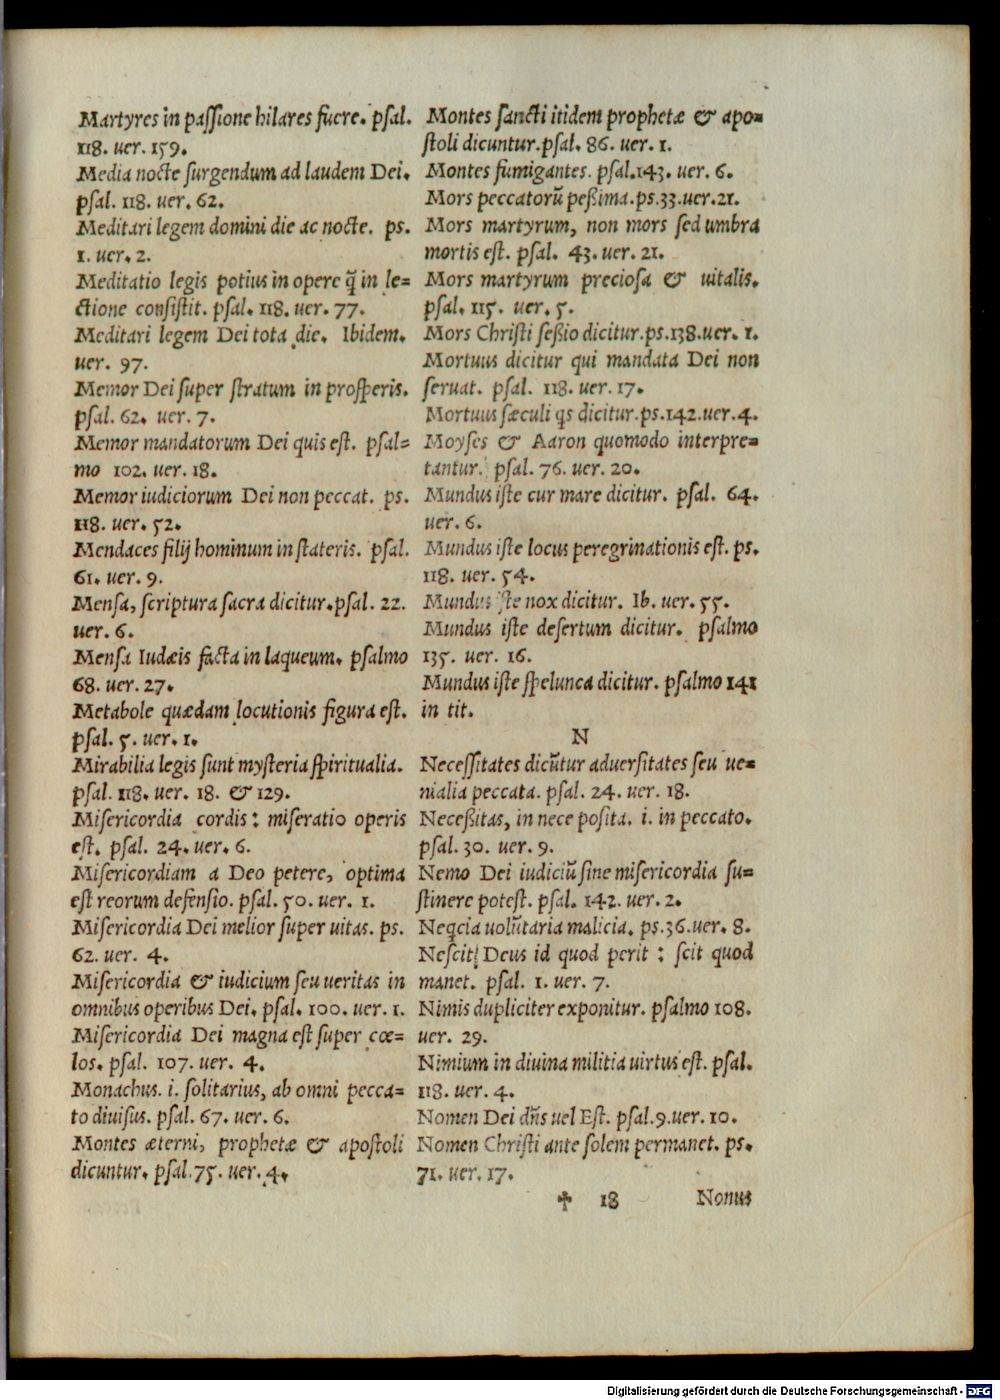 Martyres in passione hilares fuere. psal.
118. uer. 159.
Media nocte surgendum ad laudem Dei.
psal. 118. uer. 62.
Meditari legem domini die ac nocte. ps.
1. uer. 2.
Meditatio legis potius in opere q̃ in le=
ctione consistit. psal. 118. uer. 77.
Meditari legem Dei tota die. Ibidem.
uer. 97.
Memor Dei super stratum in prosperis.
psal. 62. uer. 7.
Memor mandatorum Dei quis est. psal=
mo 102. uer. 18.
Memor iudiciorum Dei non peccat. ps.
118. uer. 52.
Mendaces filij hominum in stateris. psal.
61. uer. 9.
Mensa, scriptura sacra dicitur. psal. 22.
uer. 6.
Mensa Iudæis facta in laqueum. psalmo
68. uer. 27.
Metabole quædam locutionis figura est.
psal. 5. uer. 1.
Mirabilia legis sunt mysteria spiritualia.
psal. 118. uer. 18. & 129.
Misericordia cordis: miseratio operis
est. psal. 24. uer. 6.
Misericordiam a Deo petere, optima
est reorum defensio. psal. 50. uer. 1.
Misericordia Dei melior super uitas. ps.
62. uer. 4.
Misericordia & iudicium seu ueritas in
omnibus operibus Dei. psal. 100. uer. 1.
Misericordia Dei magna est super cœ=
los. psal. 107. uer. 4.
Monachus. i. solitarius, ab omni pecca=
to diuisus. psal. 67. uer. 6.
Montes æterni, prophetæ & apostoli
dicuntur. psal. 75. uer. 4.
Montes sancti itidem prophetæ & apo=
stoli dicuntur. psal. 86. uer. 1.
Montes fumigantes. psal. 143. uer. 6.
Mors peccatorũ peßima. ps. 33. uer. 21.
Mors martyrum, non mors sed umbra
mortis est. psal. 43. uer. 21.
Mors martyrum preciosa & uitalis.
psal. 115. uer. 5.
Mors Christi seßio dicitur. ps. 138. uer. 1.
Mortuus dicitur qui mandata Dei non
seruat. psal. 118. uer. 17.
Mortuus sæculi qs dicitur. ps. 142. uer. 4.
Moyses & Aaron quomodo interpre=
tantur. psal. 76. uer. 20.
Mundus iste cur mare dicitur. psal. 64.
uer. 6.
Mundus iste locus peregrinationis est. ps.
118. uer. 54.
Mundus iste nox dicitur. Ib. uer. 55.
Mundus iste desertum dicitur. psalmo
135. uer. 16.
Mundus iste spelunca dicitur. psalmo 141
in tit.
N
Necessitates dicũtur aduersitates seu ue=
nialia peccata. psal. 24. uer. 18.
Neceßitas, in nece posita. i. in peccato.
psal. 30. uer. 9.
Nemo Dei iudiciũ sine misericordia su=
stinere potest. psal. 142. uer. 2.
Neqcia uolũtaria malicia. ps. 36. uer. 8.
Nescit Deus id quod perit: scit quod
manet. psal. 1. uer. 7.
Nimis dupliciter exponitur. psalmo 108.
uer. 29.
Nimium in diuina militia uirtus est. psal.
118. uer. 4.
Nomen Dei dñs uel Est. psal. 9. uer. 10.
Nomen Christi ante solem permanet. ps.
71. uer. 17.
✢ 18 Nonus
Digitalisierung gefördert durch die Deutsche Forschungsgemeinschaft - DFG